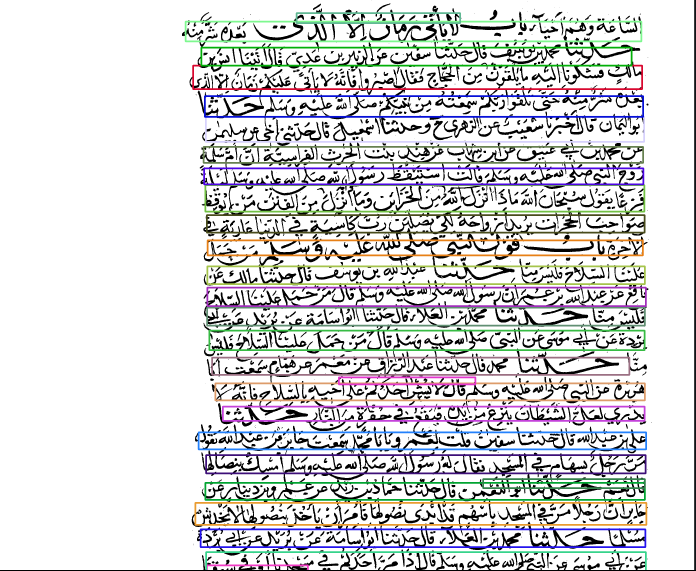 الساعة وهم احياء باب لا يأتي زمان الا الذي بعده شر منه
حدثنا محمد بن يوسف قال حدثنا سفين عن الزبير بن عدي قال اتينا انس بن
مالك فشكونا اليه ما يلقون من الحجاج فقال اصبروا فانه لا يأتي عليكم زمان الا الذي
بعده شر منه حتى تلقوا ربكم سمعته من نبيكم صلى الله عليه وسلم حدثنا
ابو اليمان قال اخبرنا شعيب عن الزهري ح وحدثنا اسمعيل قال حدثني اخي عن سليمن
عن محمد بن ابي عتيق عن ابن شهاب عن هند بنت الحرث الفراسية ان ام سلمة
زوج النبي صلى الله عليه وسلم قالت استيقظ رسول الله صلى الله عليه وسلم ليلة
فزعا يقول سبحان الله ماذا انزل الله من الخزائن وماذا انزل من الفتن من يوقظ
صواحب الحجرات يريد ازواجه لكي يصلين رب كاسية في الدنيا عارية في
الاخرة باب قول النبي صلى الله عليه وسلم من حمل
علينا السلاح فليس منا حدثنا عبد الله بن يوسف قال حدثنا مالك عن
نافع عن عبد الله بن عمر ان رسول الله صلى الله عليه وسلم قال من حمل علينا السلاح
فليس منا حدثنا محمد بن العلاء قال حدثنا ابو اسامة عن بريد عن ابي
بردة عن ابي موسى عن النبي صلى الله عليه وسلم قال من حمل علينا السلاح فليس
منا حدثنا محمد قال حدثنا عبد الرزاق عن معمر عن همام سمعت ابا
هريرة عن النبي صلى الله عليه وسلم قال لا يشير احدكم على اخيه بالسلاح فانه لا
يدري لعل الشيطان ينزع في يده فيقع في حفرة من النار حدثنا
علي بن عبد الله قال حدثنا سفين قلت لعمرو يا ابا محمد سمعت جابر بن عبد الله يقول
مر رجل بسهام في المسجد فقال له رسول الله صلى الله عليه وسلم امسك بنصالها
قال نعم حدثنا ابو النعمن قال حدثنا حماد بن زيد عن عمرو بن دينار عن
جابر ان رجلا مر في المسجد باسهم قد ابدى نصولها فامر ان ياخذ بنصولها لا يخدش
مسلما حدثنا محمد بن العلاء قال حدثنا ابو اسامة عن بريد عن ابي بردة
عن ابي موسى عن النبي صلى الله عليه وسلم قال اذا مر احدكم في مسجدنا او في سوقنا